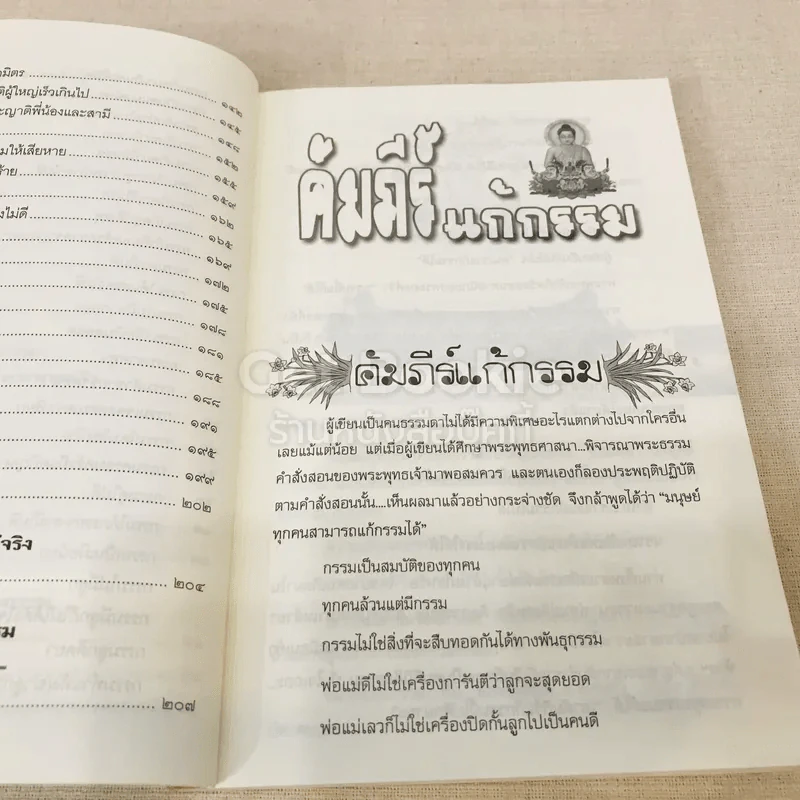 มิตร
ผู้ใหญ่เร็วเกินไป ๑๔๒
ะญาติพี่น้องและสามี ๑๔๕
๑๔๘
มให้เสียหาย ๑๕๒
ร้าย ๑๕๕
๑๕๙
งไม่ดี ๑๖๒
๑๖๕
๑๖๙
๑๗๒
๑๗๕
๑๗๘
๑๘๑
๑๘๕
๑๘๘
๑๙๑
๑๙๕
๑๙๙
๒๐๒
จริง
๒๐๔
รม
๒๐๗
คัมภีร์
แก้กรรม
คัมภีร์แก้กรรม
ผู้เขียนเป็นคนธรรมดาไม่ได้มีความพิเศษอะไรแตกต่างไปจากใครอื่น
เลยแม้แต่น้อย แต่เมื่อผู้เขียนได้ศึกษาพระพุทธศาสนา...พิจารณาพระธรรม
คำสั่งสอนของพระพุทธเจ้ามาพอสมควร และตนเองก็ลองประพฤติปฏิบัติ
ตามคำสั่งสอนนั้น....เห็นผลมาแล้วอย่างกระจ่างชัด จึงกล้าพูดได้ว่า “มนุษย์
ทุกคนสามารถแก้กรรมได้”
กรรมเป็นสมบัติของทุกคน
ทุกคนล้วนแต่มีกรรม
กรรมไม่ใช่สิ่งที่จะสืบทอดกันได้ทางพันธุกรรม
พ่อแม่ดีไม่ใช่เครื่องการันตีว่าลูกจะสุดยอด
พ่อแม่เลวก็ไม่ใช่เครื่องปิดกั้นลูกไปเป็นคนดี